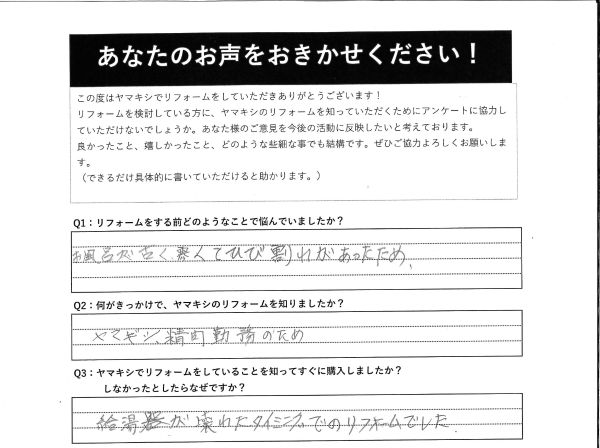 あなたのお声をおきかせください！
この度はヤマキシでリフォームをしていただきありがとうございます！
リフォームを検討している方に、ヤマキシのリフォームを知っていただくためにアンケートに協力し
ていただけないでしょうか。あなた様のご意見を今後の活動に反映したいと考えております。
良かったこと、嬉しかったこと、どのような些細な事でも結構です。ぜひご協力よろしくお願いしま
す。
（できるだけ具体的に書いていただけると助かります。）
Q1：リフォームをする前どのようなことで悩んでいましたか？
お風呂が古く、寒くてひび割れがあったため、
Q2：何がきっかけで、ヤマキシのリフォームを知りましたか？
ヤマギシ、勤務のため
Q3：ヤマキシでリフォームをしていることを知ってすぐに購入しましたか？
しなかったとしたらなぜですか？
給湯器が壊れたタイミングでのリフォームでした。